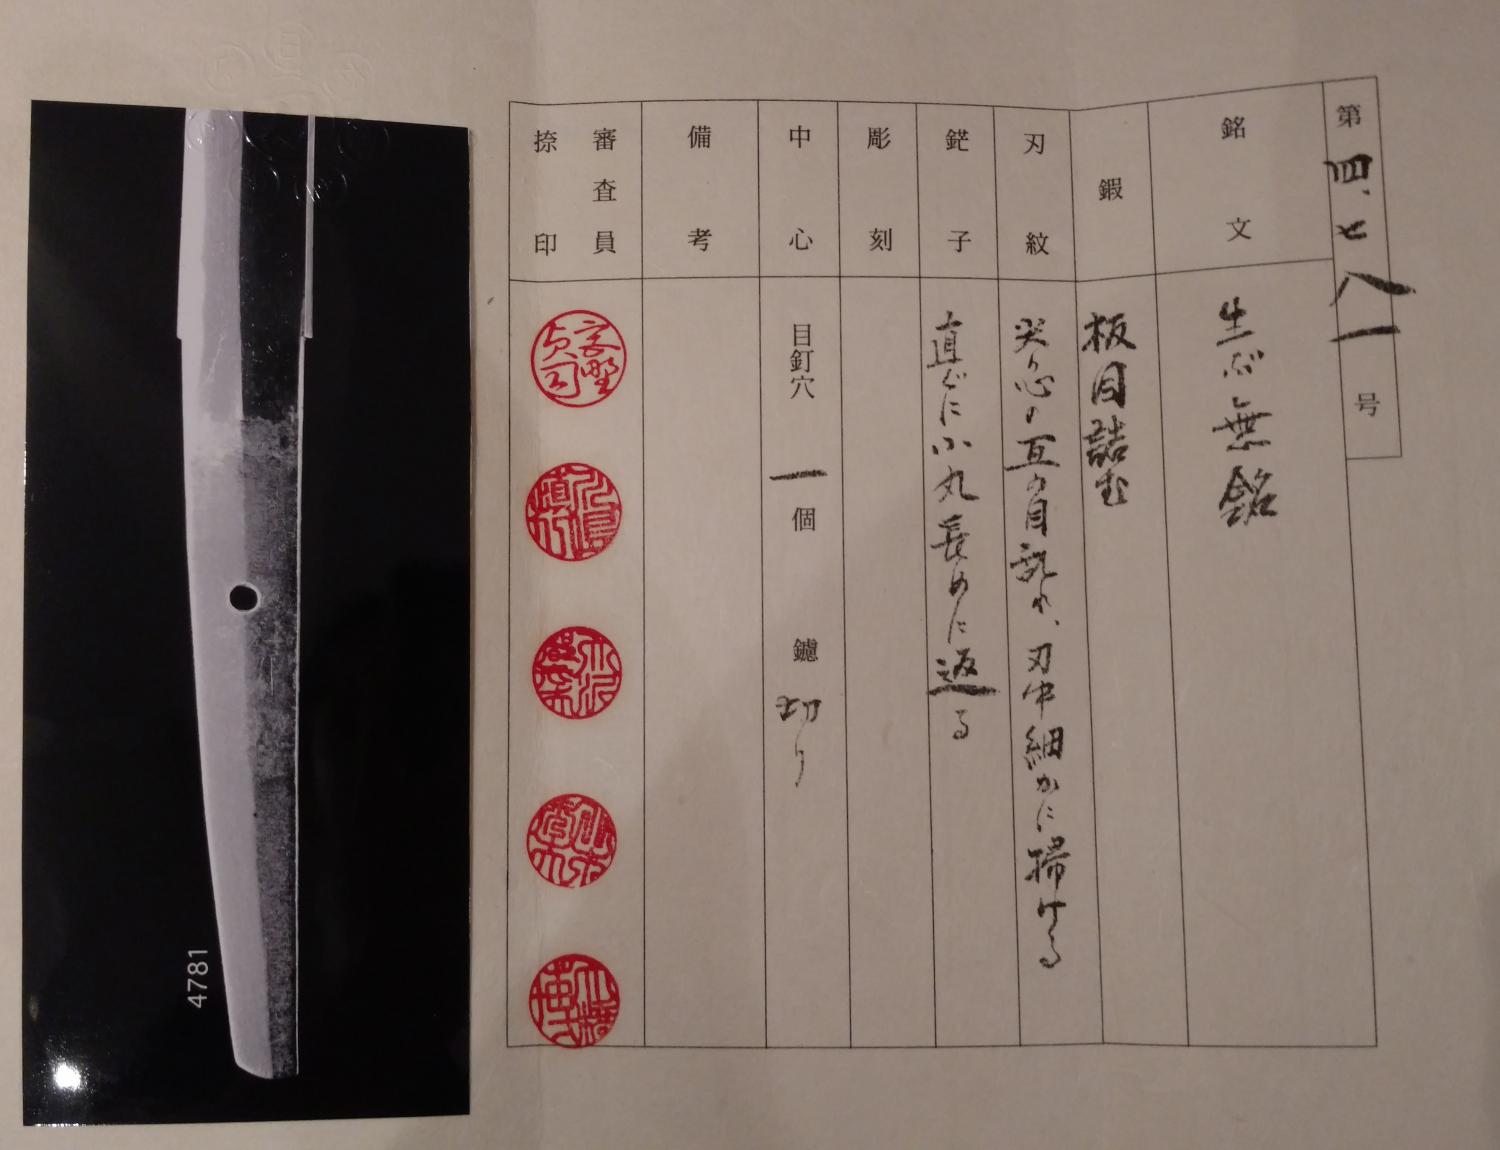 第四、七八一号
銘文
生ぶ無銘
鍜
板目詰む
刃紋
尖り心の互の目乱れ、刃中細かに掃ける
鋩子
直ぐに小丸長めに返る
彫刻
中心
目釘穴 一個 鑢 切り
備考
審査員
捺印
4781